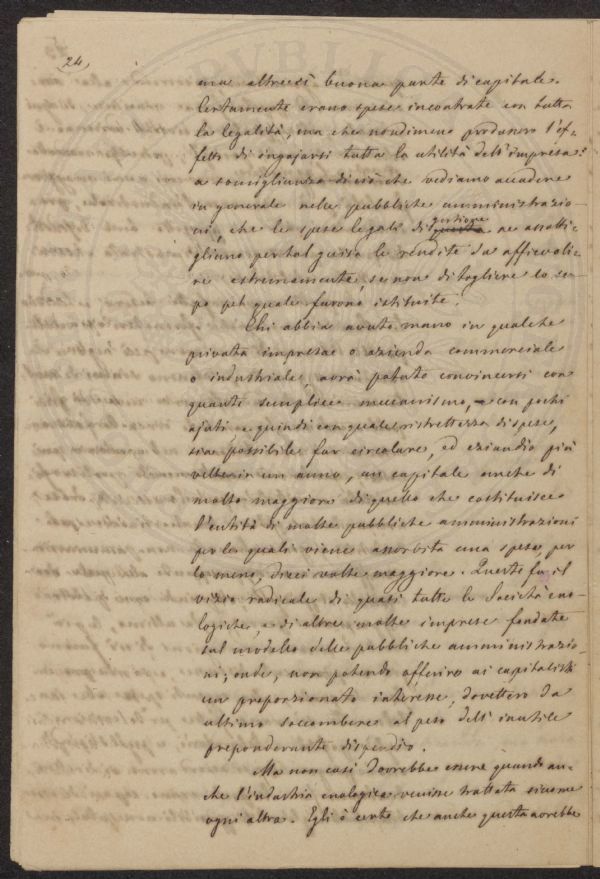 24,
ma altresì buona parte di capitale.
Certamente erano spese incontrate con tutta
la legalità, ma che nondimeno produssero l'ef-
fetto di ingojarsi tutta la utilità dell'impresa:
a somiglianza di ciò che vediamo accadere
in generale nelle pubbliche amministrazio-
ni, che le spese legali di gestione ne assotti-
gliano per tal guisa le rendite da affievoli-
re estremamente, se non di togliere lo sco-
po pel quale furono istituite.
Chi abbia avuto mano in qualche
privata impresa o azienda commerciale
o industriale, avrà potuto convincersi con
quanto semplice meccanismo, con pochi
ajuti e quindi con quale ristrettezza di spese,
sia possibile far circolare, ed eziandio più
volte in un anno, un capitale anche di
molto maggiore di quello che costituisce
l'entità di molte pubbliche amministrazioni
per le quali viene assorbita una spesa, per
lo meno, dieci volte maggiore. Questo fu il
vizio radicale di quasi tutte le Società eno-
logiche, e di altre molte imprese fondate
sul modello delle pubbliche amministrazio-
ni; onde, non potendo offerire ai capitalisti
un proporzionato interesse, dovettero da
ultimo soccombere al peso dell'inutile
preponderante dispendio.
Ma non così dovrebbe essere quando an-
che l'industria enologica venisse trattata siccome
ogni altra. Egli è certo che anche questa avrebbe